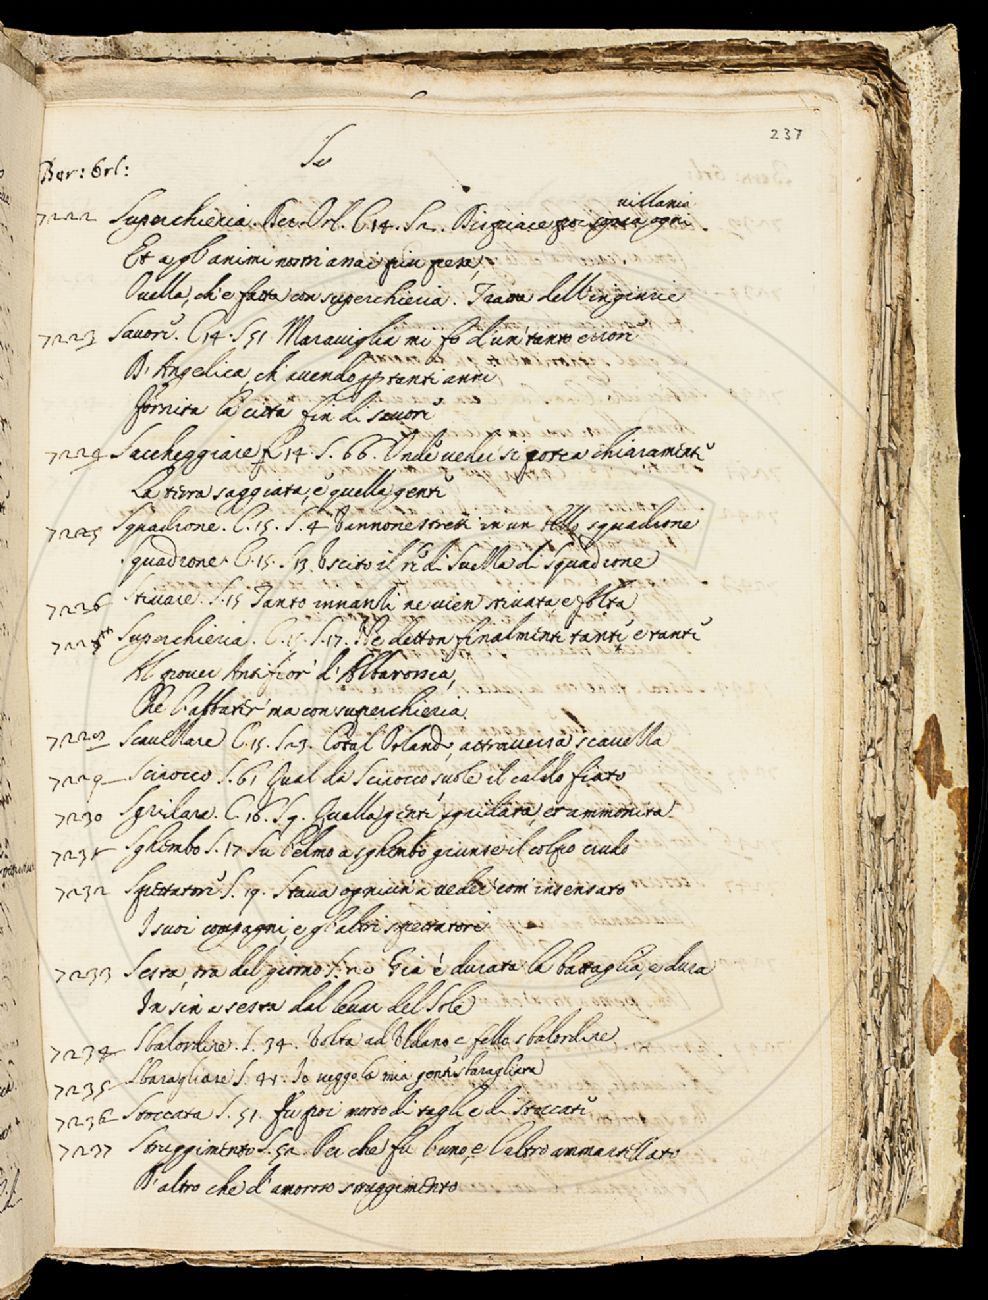 237
Ber: Orl:
7222 Superchieria. Ber. Orl. C.14. S.2. Dispiace poi ogni villania
Et agl'animi nostri assai più pesa,
Quella, ch'è fatta con superchieria. Tratta dell'ingiurie
7223 Savori. C.14 S.51 Maraviglia mi fò d'un tanto errore
D'Angelica, ch'avendo per tanti anni
fornita la città fin di savori
7224 Saccheggiare C.14. S.66. Onde veder si potea chiaramente
La terra saggiata, e quella gente
7225 Squadrone. C.15. S.4 Vannone stretti in un bello squadrone
Squadrone C.15. S.13 Uscito il rè di Suella di Squadrone
7226 Stivare. S.15 Tanto innanzi ne vien stivata, e folta
Superchieria. C.15. S.17. Ne detton finalmente tante e tante
Al giovec Antifior d'Albarossia,
Che l'abbatter ma con superchieria.
Scavellare C.15. S.23. Cotal Orlando, attraversa, scavella
7229 Scirocco S.61 Qual da Scirocco suole il caldo fiato
7230 Sgridare. C.16. S.9. Quella gente sgridata, et ammonita
7231 Sghembo S.17 Su l'elmo a sghembo giunse il colpo crudo
7232 Spettatori S.19. Stava ognun a veder com'insensato
I suoi compagni, e gl'altri spettatori
7233 Sesta, ora del giorno S.20 Già è durata la battaglia, e dura
In sin a sesta dal levar del Sole
7234 Sbalordire. S.34. Volta ad Uldano e fello sbalordire
7235 Sbaragliare S.41. Io veggo la mia gente sbaragliare
7236 Stoccata S.51. Fu poi morto di tagli e di stoccate
7237 Struggimento S.52. Per che fu l'uno, e l'altro ammartellato
D'altro che d'amoroso struggimento